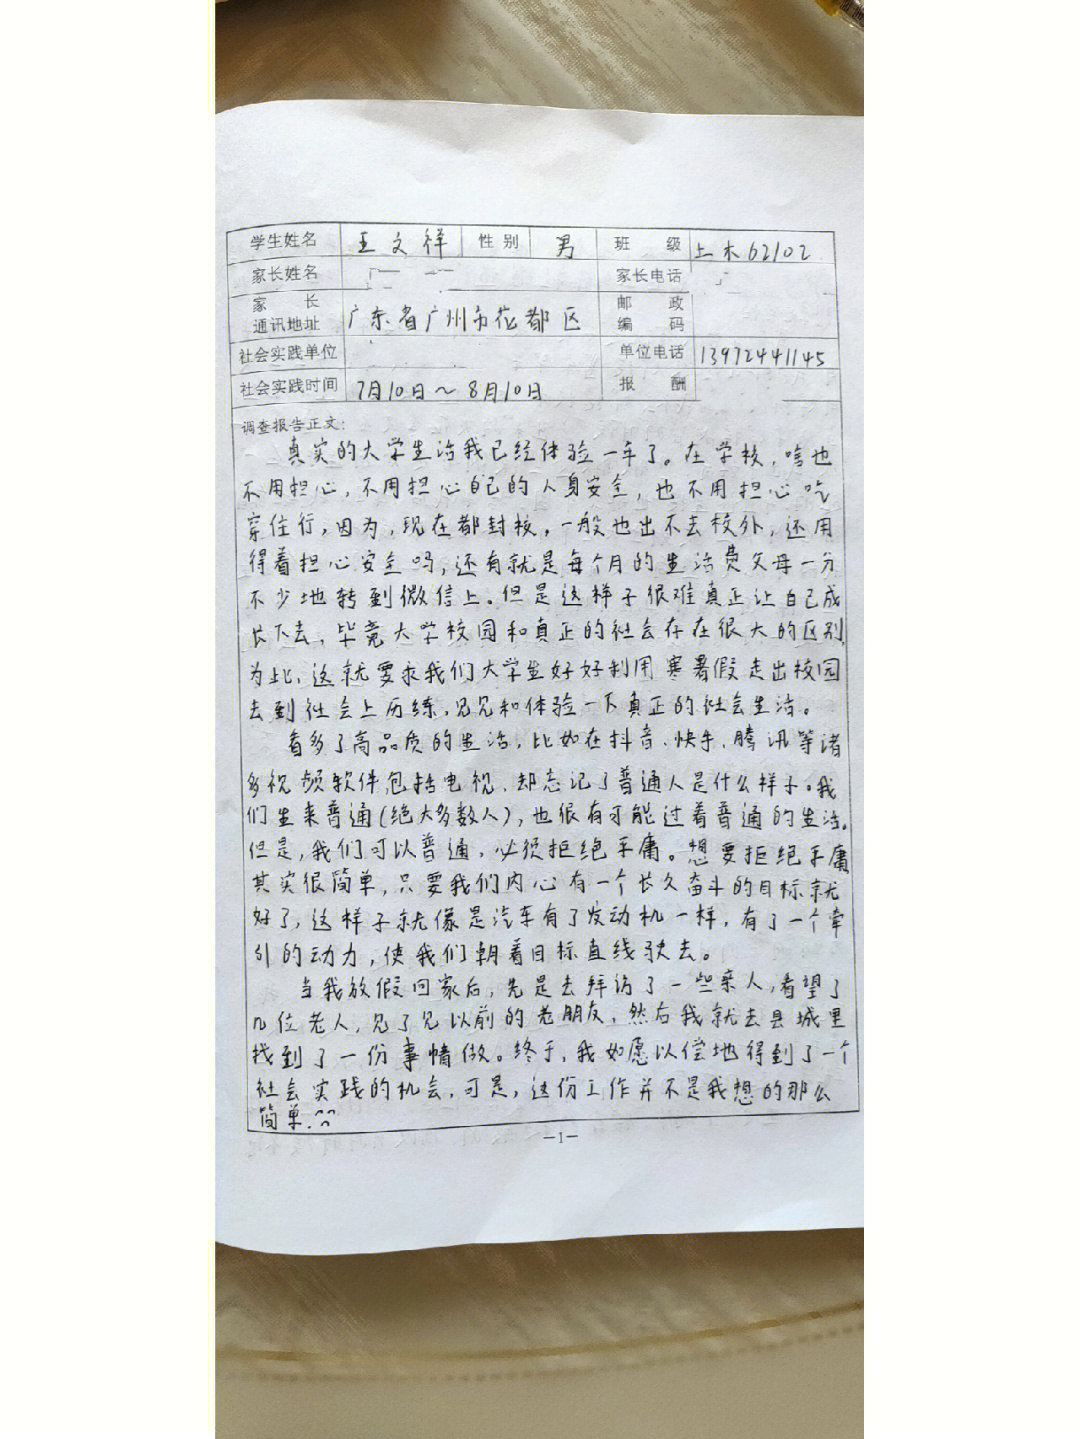 学生姓名 王文祥 性别 男 班级 土木62102
家长姓名 家长电话
家长通讯地址 广东省广州市花都区 邮政编码
社会实践单位 单位电话 13972441145
社会实践时间 7月10日~8月10日 报酬
调查报告正文:
真实的大学生活我已经体验一年了。在学校,啥也
不用担心,不用担心自己的人身安全,也不用担心吃
穿住行,因为,现在都封校,一般也出不去校外,还用
得着担心安全吗,还有就是每个月的生活费父母一分
不少地转到微信上。但是这样子很难真正让自己成
长下去,毕竟大学校园和真正的社会存在很大的区别,
为此,这就要求我们大学生好好利用寒暑假走出校园
去到社会上历练,见见和体验一下真正的社会生活。
看多了高品质的生活,比如在抖音、快手、腾讯等诸
多视频软件包括电视,却忘记了普通人是什么样子。我
们生来普通(绝大多数人),也很有可能过着普通的生活。
但是,我们可以普通,必须拒绝平庸。想要拒绝平庸
其实很简单,只要我们内心有一个长久奋斗的目标就
好了,这样子就像是汽车有了发动机一样,有了一个牵
引的动力,使我们朝着目标直线驶去。
当我放假回家后,先是去拜访了一些亲人,看望了
几位老人,见了见以前的老朋友,然后我就去县城里
找到了一份事情做。终于,我如愿以偿地得到了一个
社会实践的机会,可是,这份工作并不是我想的那么
简单.
—1—